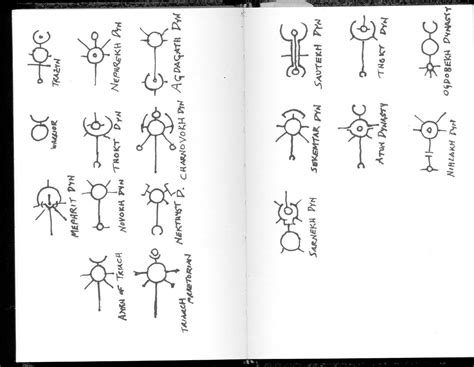 TRAZYN
NEPHREKH DYN
AGDAGATH DYN
WARRIOR
THOKT DYN
CHARNOVOKH DYN
MEPHRIT DYN
NOVOKH DYN
NEKTHYST D.
OF TRIACH
TRIARCH PRAETORIAN
SAUTEKH DYN
THOKT DYN
OGDOBEKH DYNASTY
SEKEMTAR DYN
ATUN DYNASTY
NIHILAKH DYN
SARNEKH DYN